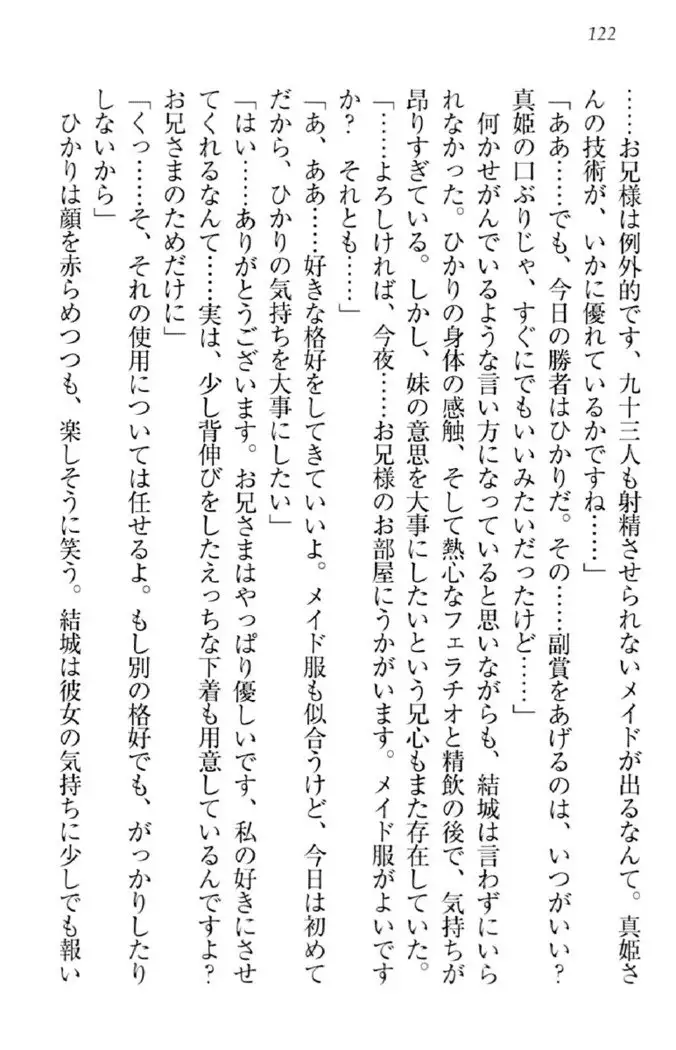 122
……お兄様は例外的です、九十三人も射精させられないメイドが出るなんて。真姫さ
んの技術が、いかに優れているかですね……」
「ああ……でも、今日の勝者はひかりだ。その……副賞をあげるのは、いつがいい？
真姫の口ぶりじゃ、すぐにでもいいみたいだったけど……」
何かせがんでいるような言い方になっていると思いながらも、結城は言わずにいら
れなかった。ひかりの身体の感触、そして熱心なフェラチオと精飲の後で、気持ちが
昂りすぎている。しかし、妹の意思を大事にしたいという兄心もまた存在していた。
「……よろしければ、今夜……お兄様のお部屋にうかがいます。メイド服がよいです
か？　それとも……」
「あ、ああ……好きな格好をしてきていいよ。メイド服も似合うけど、今日は初めて
だから、ひかりの気持ちを大事にしたい」
「はい……ありがとうございます。お兄さまはやっぱり優しいです、私の好きにさせ
てくれるなんて……実は、少し背伸びをしたえっちな下着も用意しているんですよ？
お兄さまのためだけに」
「くっ……そ、それの使用については任せるよ。もし別の格好でも、がっかりしたり
しないから」
ひかりは顔を赤らめつつも、楽しそうに笑う。結城は彼女の気持ちに少しでも報い